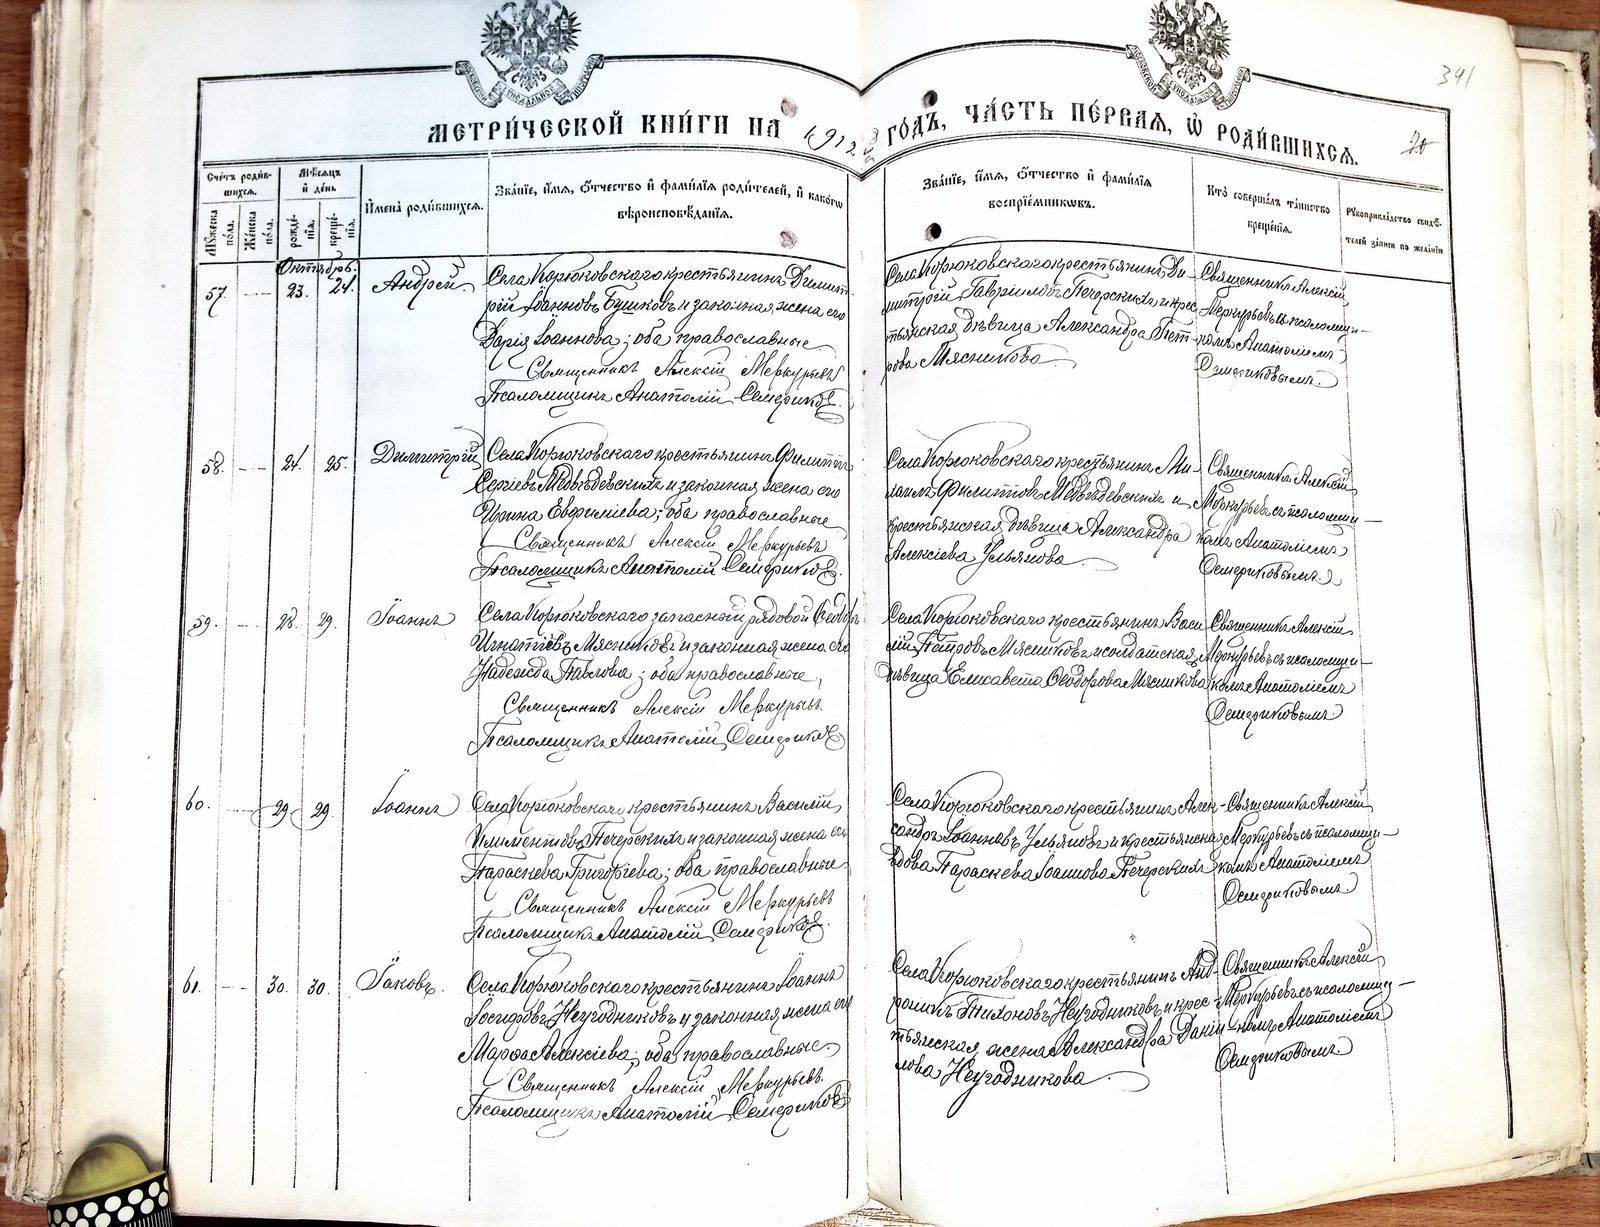 341
МЕТРИ́ЧЕСКОЙ КНИ́ГИ НА 1912 ГО́ДЪ, ЧА́СТЬ ПЕ́РВАЯ, Ѡ РОДИ́ВШИХСЯ.
Сче́тъ роди́в-
шихся.
Му́жеска по́ла.
Же́нска по́ла.
Мѣ́сяцъ
и де́нь
рожде́-
нїя.
креще́-
нїя.
И҆мена̀ роди́вшихся.
Зва́нїе, и҆́мя, ѻ҆́тчество и҆ фами́лїя роди́телей, и҆ како́гѡ
вѣроисповѣ́данїя.
Зва́нїе, и҆́мя, ѻ҆́тчество и҆ фами́лїя
воспрїе́мникѡвъ.
Кто̀ соверша́лъ та́инство
креще́нїя.
Рꙋкоприкла́дство свидѣ́-
телей за́писи по жела́нїю
Октябрь.
57. 23. 24. Андрей.
Села Корюковскаго крестьянинъ Димит-
рій Іоанновъ Бушковъ и законная жена его
Дарія Іоаннова; оба православные.
Священникъ Алексій Меркурьевъ
Псаломщикъ Анатолій Семериковъ.
Села Корюковскаго крестьянинъ Ди-
митрій Гавріиловъ Печерскихъ и крес-
тьянская дѣвица Александра Пет-
рова Мясникова.
Священникъ Алексій
Меркурьевъ съ псаломщи-
комъ Анатоліемъ
Семериковымъ.
58. 24. 25. Димитрій
Села Корюковскаго крестьянинъ Филиппъ
Сергіевъ Медвѣдевскихъ и законная жена его
Ирина Евфиміева; оба православные
Священникъ Алексій Меркурьевъ
Псаломщикъ Анатолій Семериковъ.
Села Корюковскаго крестьянинъ Ми-
хаилъ Филипповъ Медвѣдевскихъ и
крестьянская дѣвица Александра
Алексіева Ульянова.
Священникъ Алексій
Меркурьевъ съ псаломщи-
комъ Анатоліемъ
Семериковымъ.
59. 28. 29. Іоаннъ
Села Корюковскаго запасный рядовой Ѳеодоръ
Игнатіевъ Мясниковъ и законная жена его
Надежда Павлова; оба православные,
Священникъ Алексій Меркурьевъ.
Псаломщикъ Анатолій Семериковъ
Села Корюковскаго крестьянинъ Васи-
лій Петровъ Мясниковъ и солдатская
дѣвица Елисавета Ѳеодорова Мясникова
Священникъ Алексій
Меркурьевъ съ псаломщи-
комъ Анатоліемъ
Семериковымъ.
60. 29. 29. Іоаннъ
Села Корюковскаго крестьянинъ Василій
Климентовъ Печерскихъ и законная жена его
Параскева Григоріева; оба православные.
Священникъ Алексій Меркурьевъ
Псаломщикъ Анатолій Семериковъ.
Села Корюковскаго крестьянинъ Алек-
сандръ Іоанновъ Ульяновъ и крестьянская
вдова Параскева Іоаннова Печерскихъ
Священникъ Алексій
Меркурьевъ съ псаломщи-
комъ Анатоліемъ
Семериковымъ
61. 30. 30. Іаковъ.
Села Корюковскаго крестьянинъ Іоаннъ
Іосифовъ Неугодниковъ и законная жена его
Марѳа Алексіева; оба православные.
Священникъ Алексій Меркурьевъ.
Псаломщикъ Анатолій Семериковъ
Села Корюковскаго крестьянинъ Анд-
роникъ Тихоновъ Неугодниковъ и крес-
тьянская жена Александра Даніи-
лова Неугодникова.
Священникъ Алексій
Меркурьевъ съ псаломщи-
комъ Анатоліемъ
Семериковымъ.